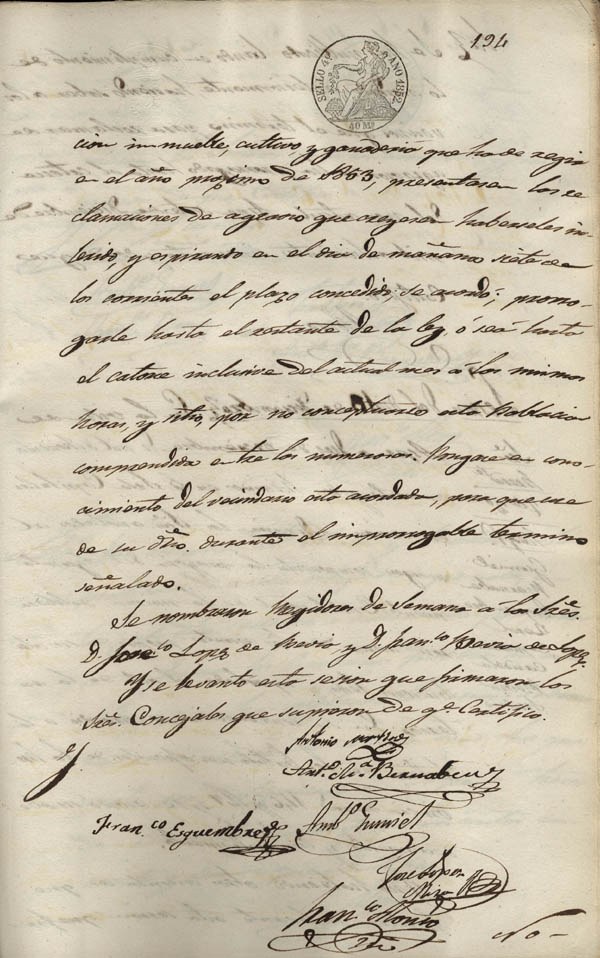 194
SELLO 4º AÑO 1852
40 Ms
cion inmueble, cultivo, y ganaderia que ha de regir
en el año proximo de 1853, presentasen los re
clamaciones de agravio que creyesen haberseles in
ferido, y espirando en el dia de mañana siete de
los corrientes el plazo concedido; se acordó; prorro
garle hasta el restante de la ley, ó sea hasta
el catorce inclusive del actual mes á las mismas
horas, y sitio, por no conceptuarse esta Poblacion
comprendida entre las numerosas. Pongase en cono
cimiento del vecindario esta acordada, para que use
de su dro. durante el improrrogable termino
señalado.
Se nombraron Regidores de Semana a los Sres.
D. Lopez de y D. Franco de Lopez.
Y se levantó esta sesion que firmaron los
Sres. Concejales que supieron de qe. Certifico.
Antonio
Anto. Ma. Bernabeu
Franco Esquembre
Jose Lopez
Franco Alonso
No-